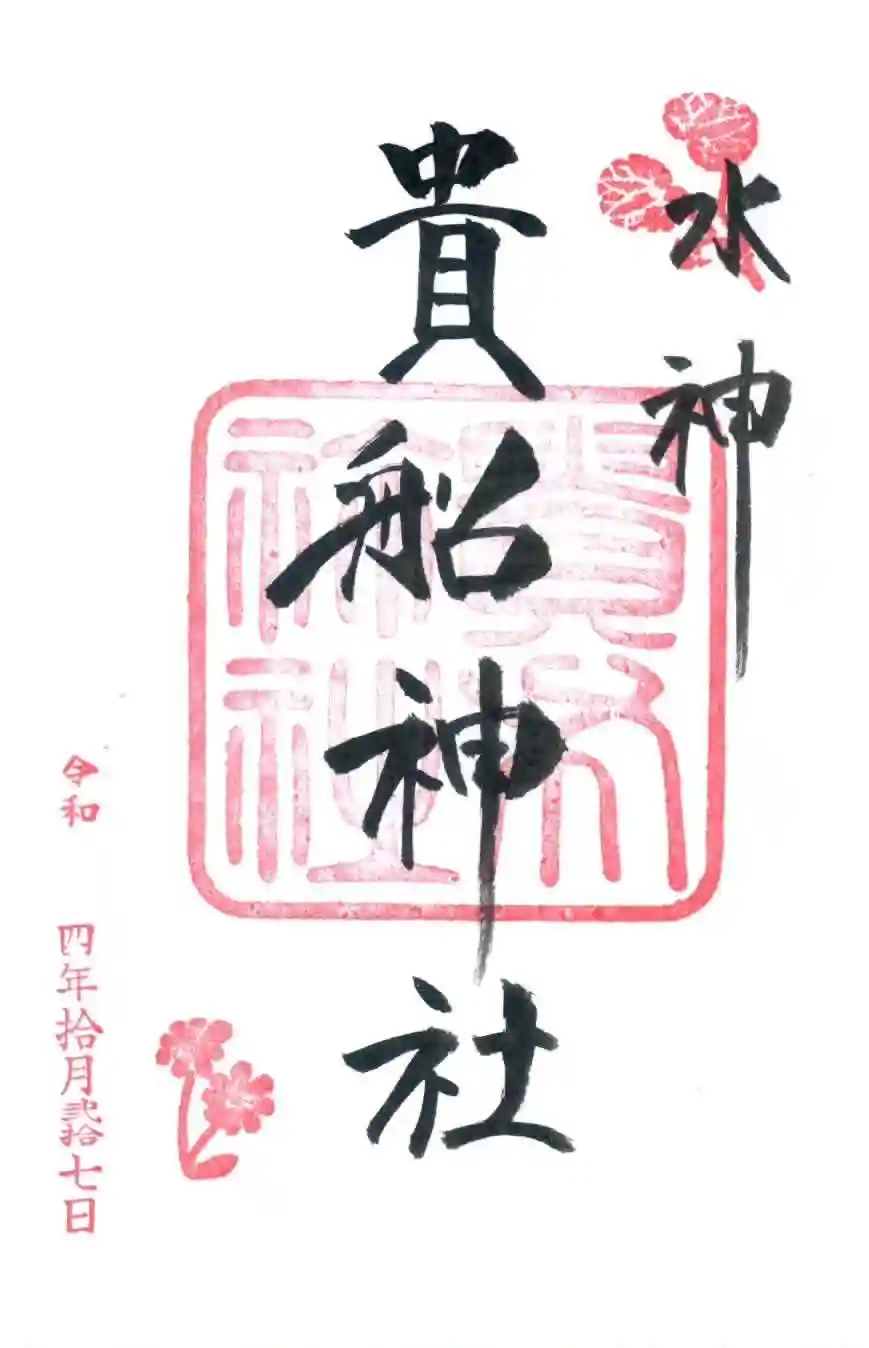 水神
貴船神社
貴布祢社
令和 四年拾月弐拾七日